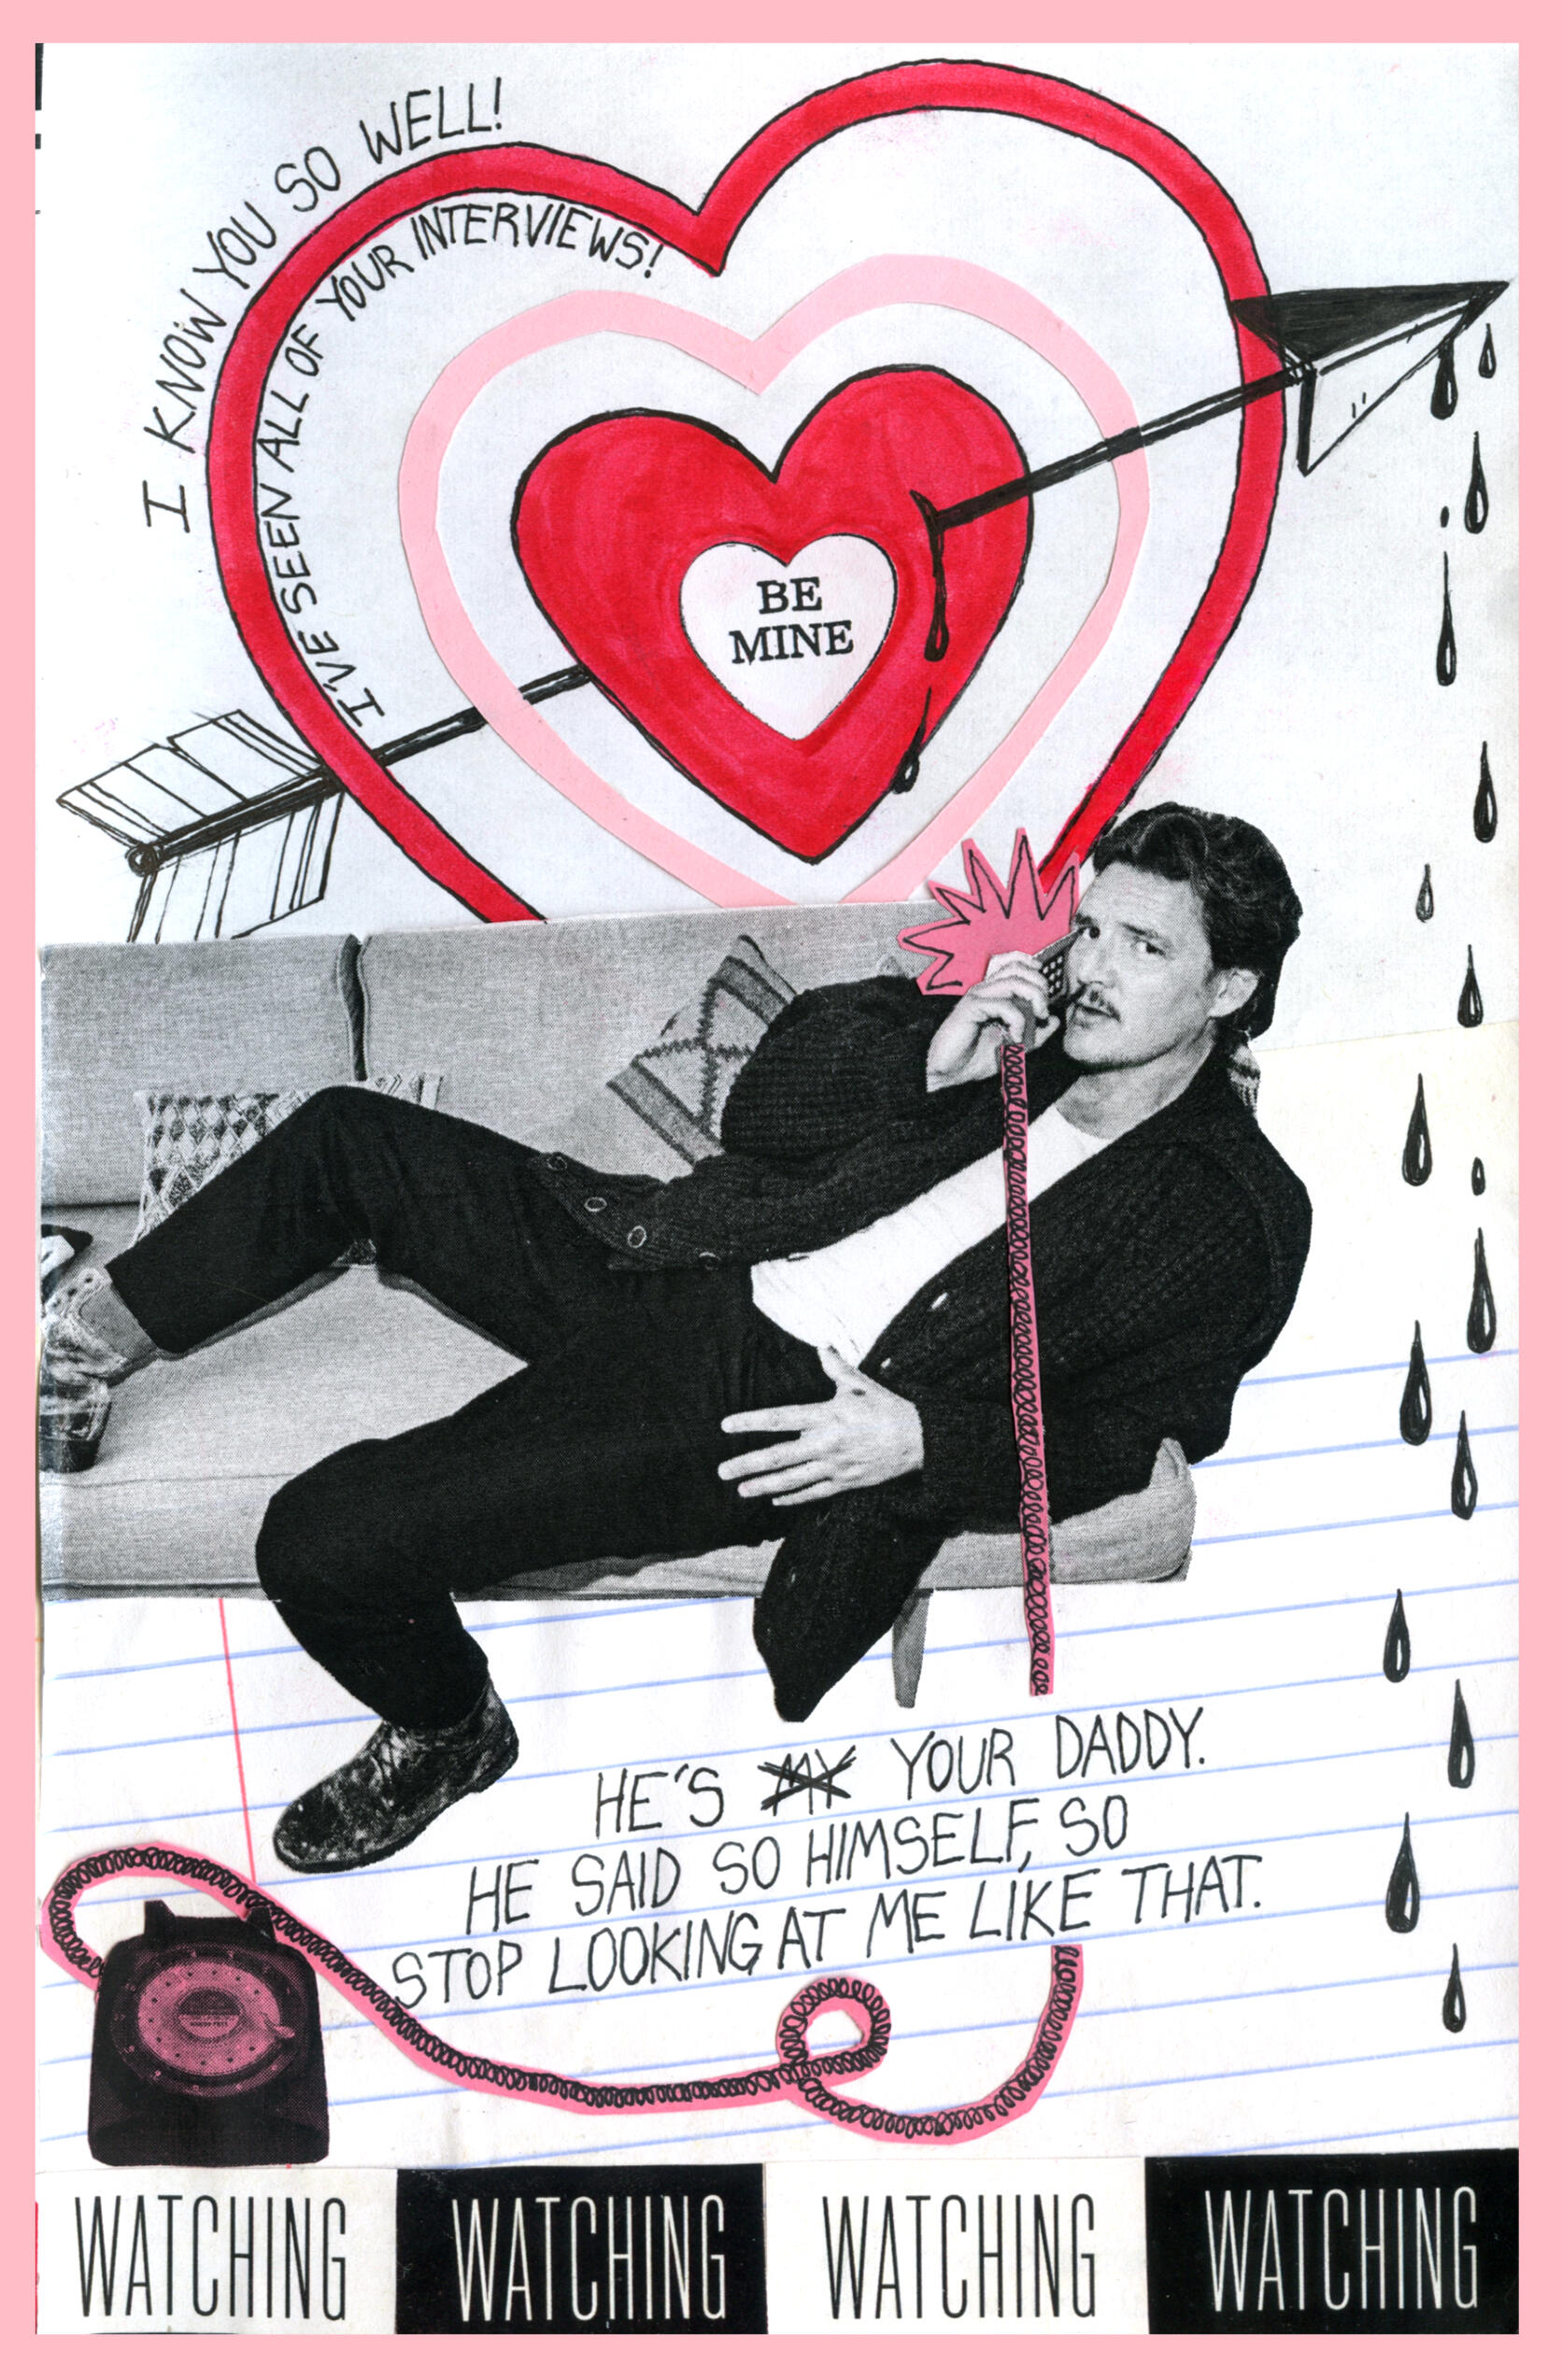 I KNOW YOU SO WELL!
I'VE SEEN ALL OF YOUR INTERVIEWS!
BE
MINE
HE'S MY YOUR DADDY.
HE SAID SO HIMSELF, SO
STOP LOOKING AT ME LIKE THAT.
WATCHING WATCHING WATCHING WATCHING